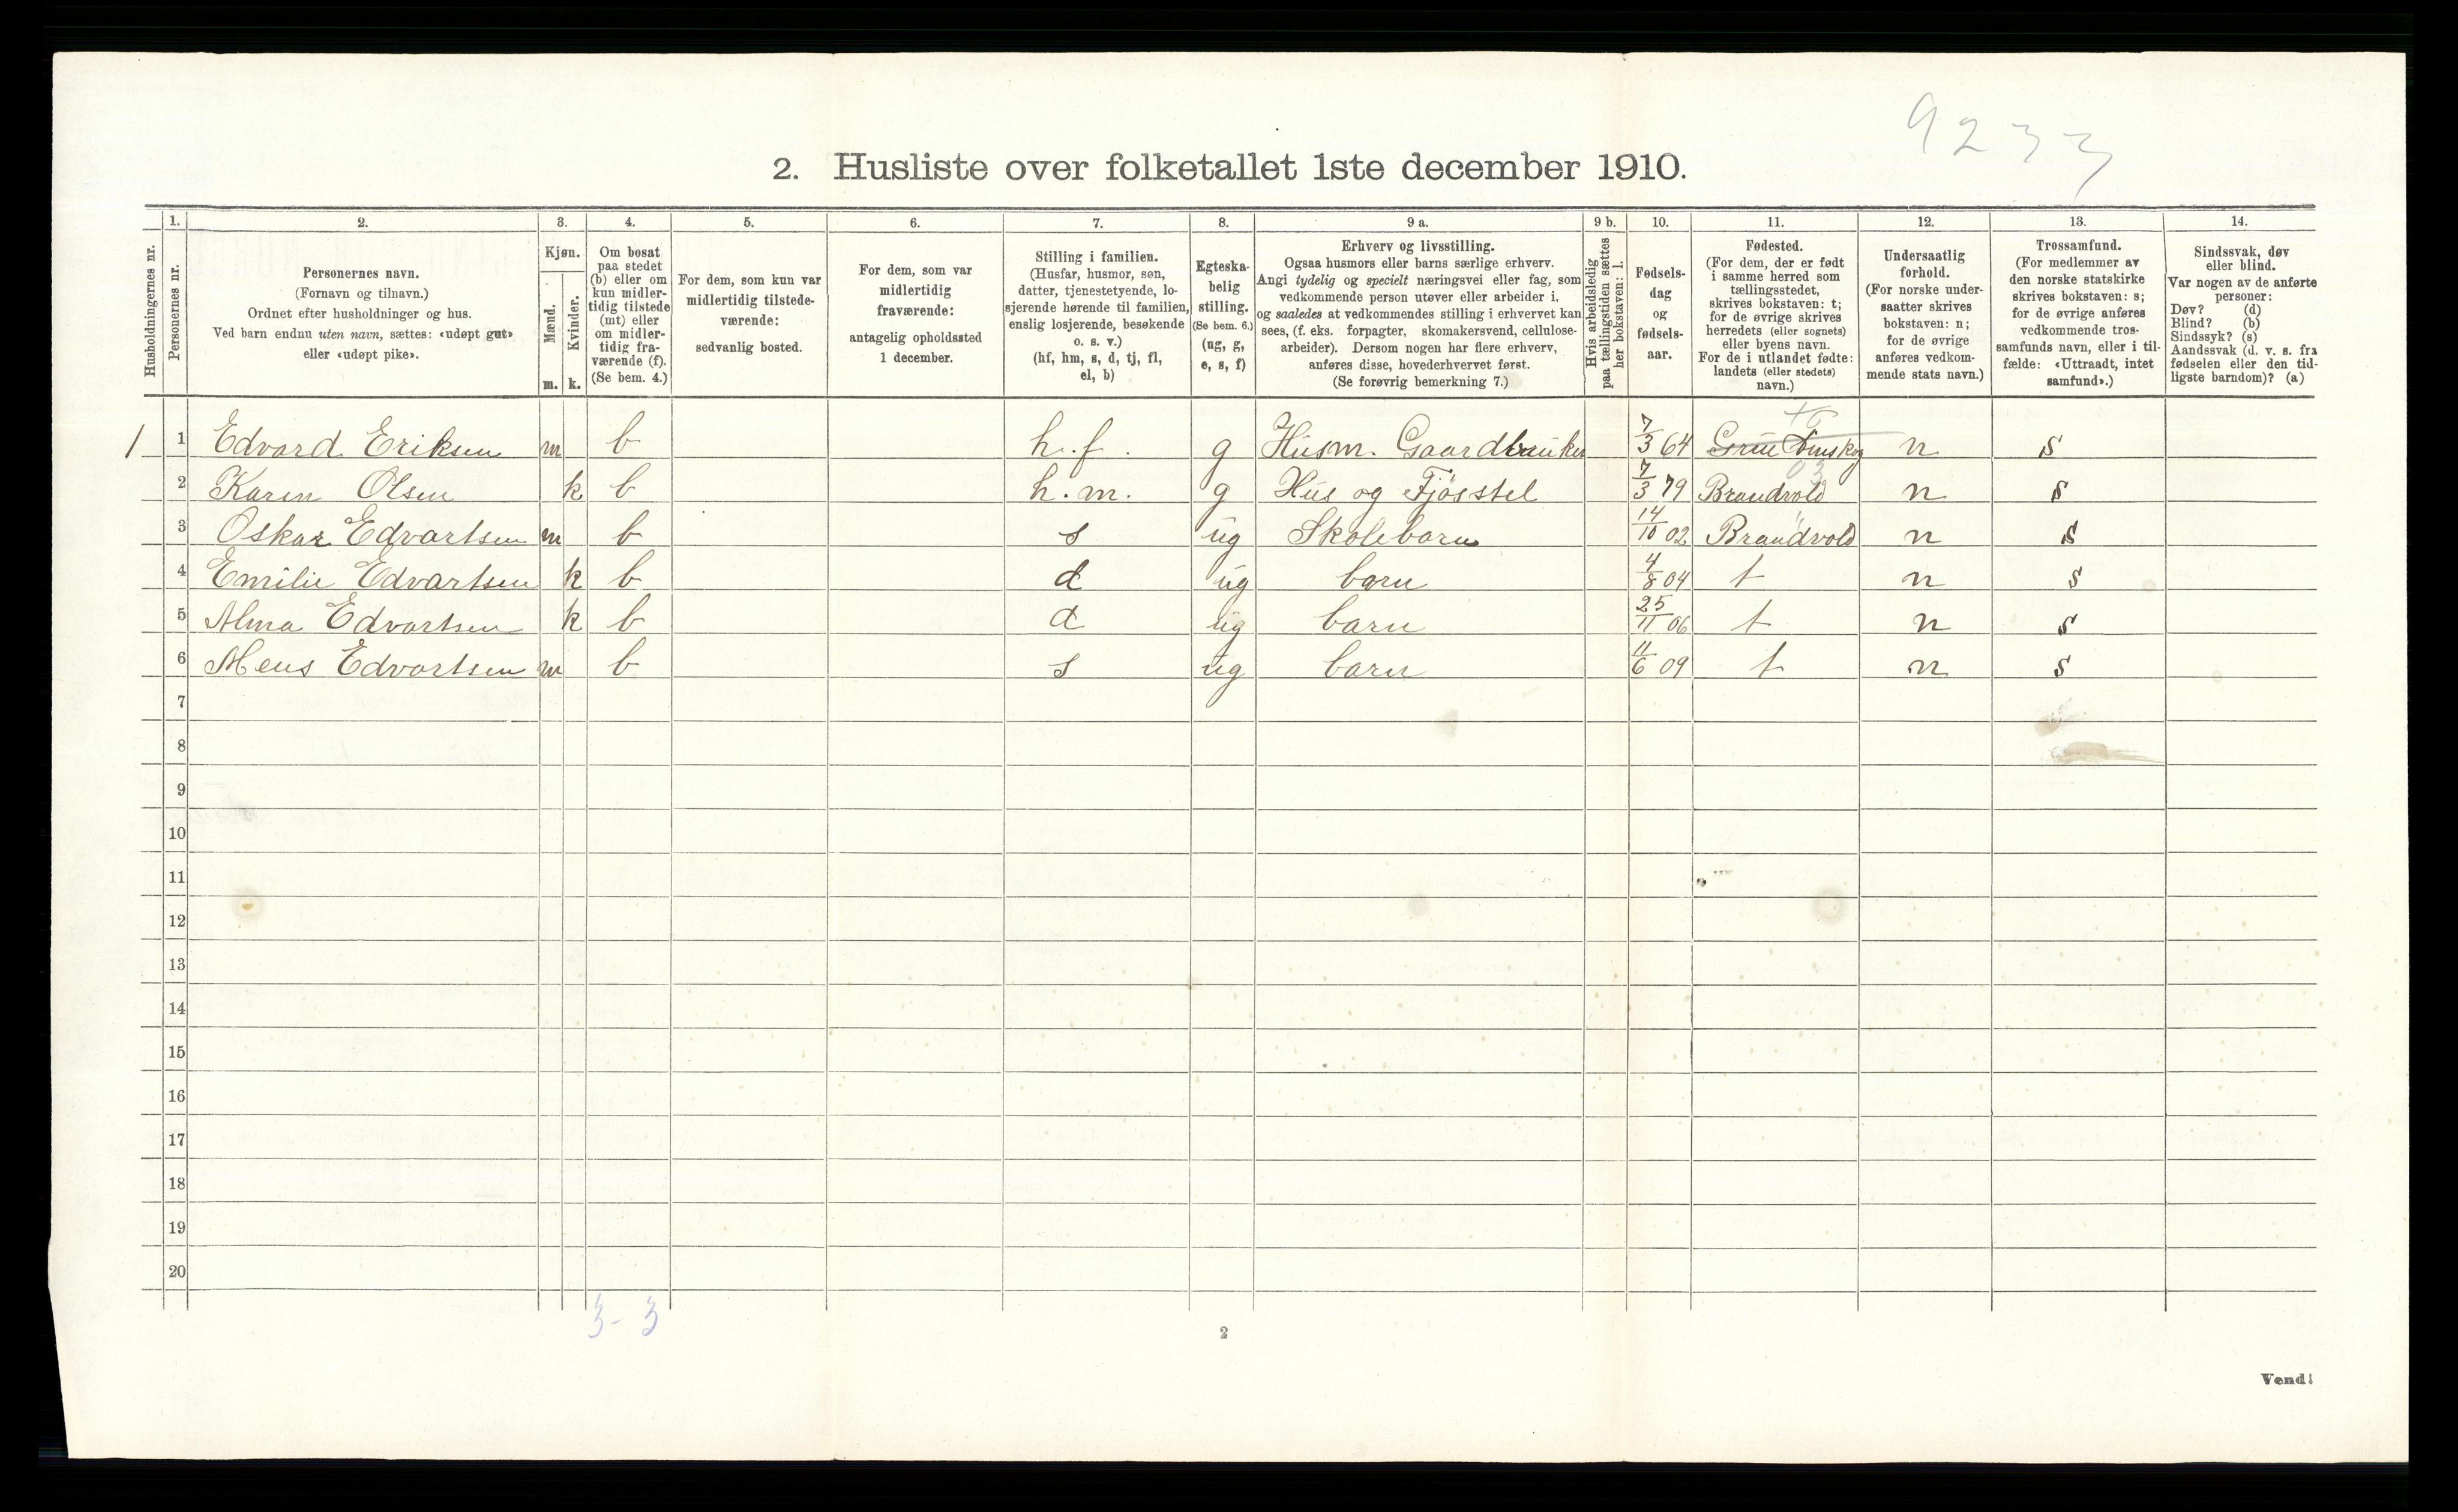 9233
2. Husliste over folketallet 1ste december 1910.
1. 2. 3. 4. 5. 6. 7. 8. 9 a. 9 b. 10. 11. 12. 13. 14.
Husholdningernes nr.
Personernes nr.
Personernes navn.
(Fornavn og tilnavn.)
Ordnet efter husholdninger og hus.
Ved barn endnu uten navn, sættes: «udøpt gut»
eller «udøpt pike».
Kjøn.
Mænd.
Kvinder.
m. k.
Om bosat
paa stedet
(b) eller om
kun midler-
tidig tilstede
(mt) eller
om midler-
tidig fra-
værende (f).
(Se bem. 4.)
For dem, som kun var
midlertidig tilstede-
værende:
sedvanlig bosted.
For dem, som var
midlertidig
fraværende:
antagelig opholdssted
1 december.
Stilling i familien.
(Husfar, husmor, søn,
datter, tjenestetyende, lo-
sjerende hørende til familien,
enslig losjerende, besøkende
o. s. v.)
(hf, hm, s, d, tj, fl,
el, b)
Egteska-
belig
stilling.
(Se bem. 6.)
(ug, g,
e, s, f)
Erhverv og livsstilling.
Ogsaa husmors eller barns særlige erhverv.
Angi tydelig og specielt næringsvei eller fag, som
vedkommende person utøver eller arbeider i,
og saaledes at vedkommendes stilling i erhvervet kan
sees, (f. eks. forpagter, skomakersvend, cellulose-
arbeider). Dersom nogen har flere erhverv,
anføres disse, hovederhvervet først.
(Se forøvrig bemerkning 7.)
Hvis arbeidsledig
paa tællingstiden sættes
her bokstaven: l.
Fødsels-
dag
og
fødsels-
aar.
Fødested.
(For dem, der er født
i samme herred som
tællingsstedet,
skrives bokstaven: t;
for de øvrige skrives
herredets (eller sognets)
eller byens navn.
For de i utlandet fødte:
landets (eller stedets)
navn.)
Undersaatlig
forhold.
(For norske under-
saatter skrives
bokstaven: n;
for de øvrige
anføres vedkom-
mende stats navn.)
Trossamfund.
(For medlemmer av
den norske statskirke
skrives bokstaven: s;
for de øvrige anføres
vedkommende tros-
samfunds navn, eller i til-
fælde: «Uttraadt, intet
samfund».)
Sindssvak, døv
eller blind.
Var nogen av de anførte
personer:
Døv? (d)
Blind? (b)
Sindssyk? (s)
Aandssvak (d. v. s. fra
fødselen eller den tid-
ligste barndom)? (a)
1 1 Edvard Eriksen m b h.f. g Husm. Gaardbruker 7/3 64 Grue n s
2 Karen Olsen k b h.m. g Hus og Fjösstel 7/3 79 Brandvold n s
3 Oskar Edvartsen m b s ug Skolebarn 14/10 02 Brandvold n s
4 Emilie Edvartsen k b d ug barn 4/8 04 t n s
5 Alma Edvartsen k b d ug barn 25/11 06 t n s
6 Edvartsen m b s ug barn 11/6 09 t n s
7
8
9
10
11
12
13
14
15
16
17
18
19
20
3-3
2
Vend!